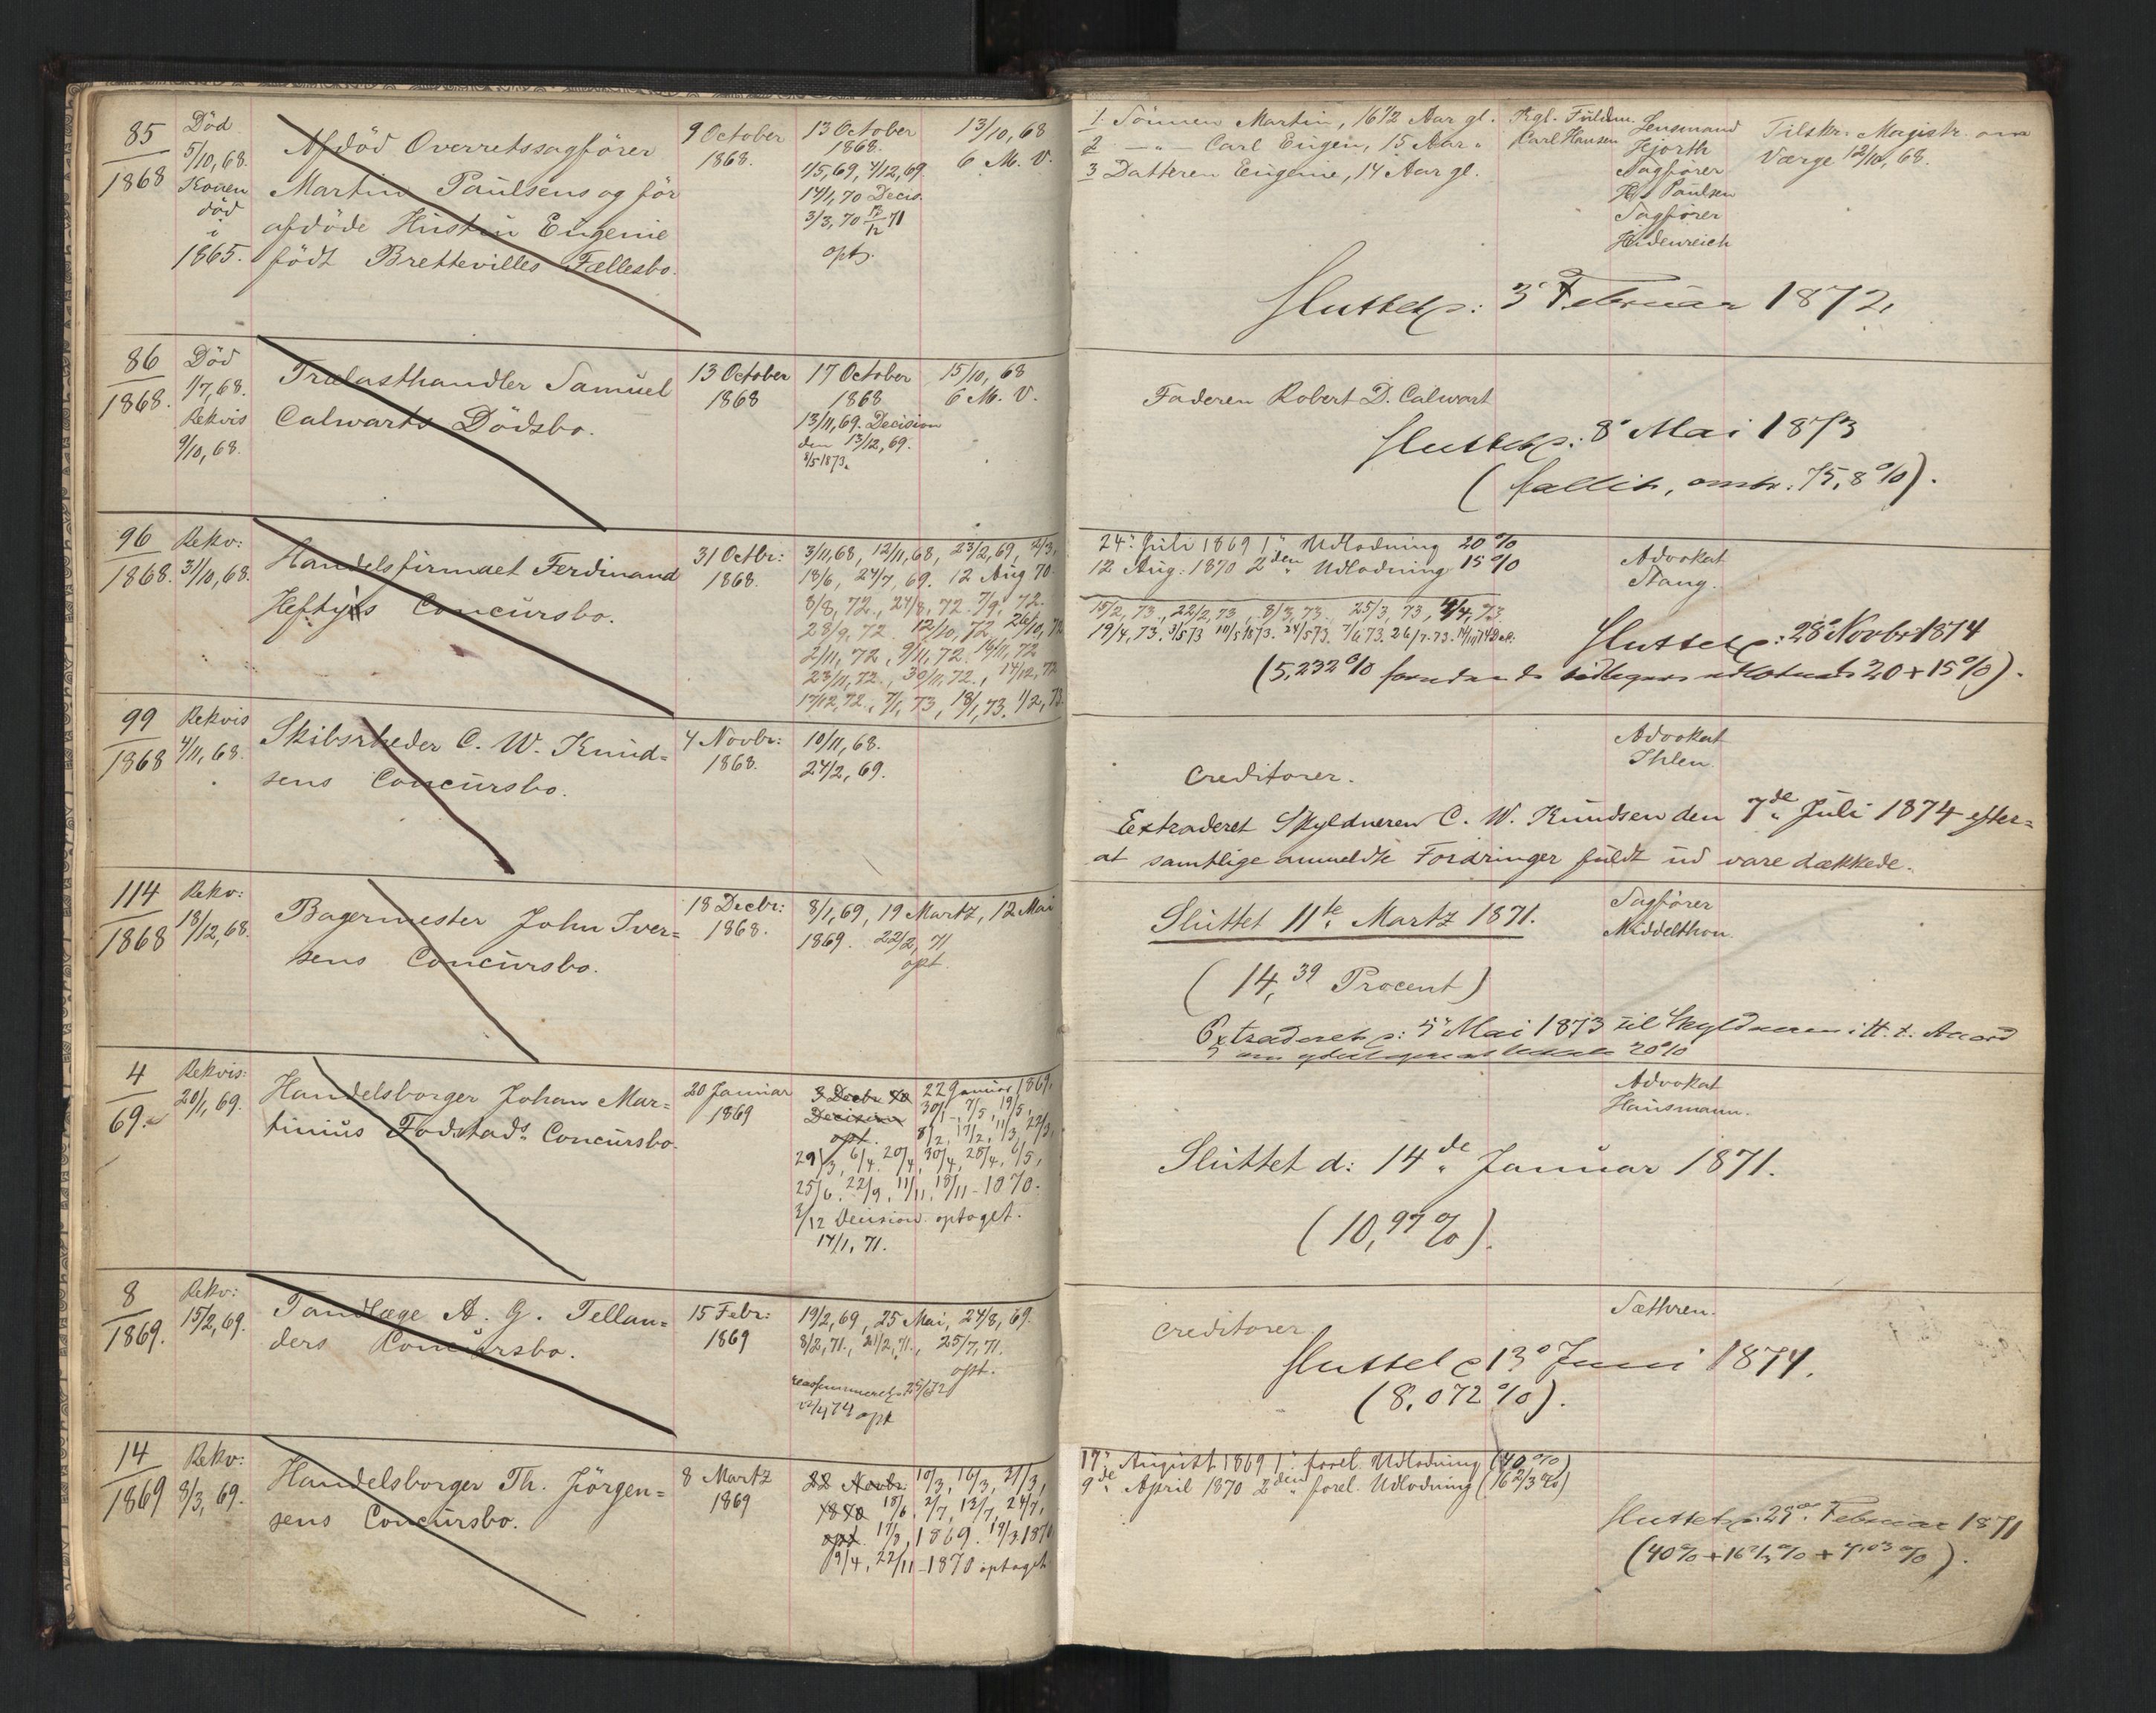 85
1868
Död
5/10, 68.
Konen
död
i
1865.
Afdöd Overretssagförer
Martin Paulsens og för
afdöde Hustru Eugenie
födt Brettevilles Fællesbo.
9 October
1868.
13 October
1868.
1/5, 69, 4/12, 69.
14/1, 70 Decis.
3/3, 70
opt.
13/10, 68
6 M. V.
1. Sönnen Martin, 16 1/2 Aar gl.
2 — " — Carl Eugen, 15 Aar "
3 Datteren Eugenie, 14 Aar gl.
Kgl. Fuldm.
Carl Hansen
Lensmand
Hjorth
Sagförer
Paulsen
Sagförer
Heidenreich
Tilskr. Magistr. om
Værge 12/10, 68.
Sluttet p: 3die Februar 1872.
86
1868.
Död
1/7, 68.
Rekvis
9/10, 68.
Trælasthandler Samuel
Calwarts Dödsbo.
13 October
1868
17 October
1868
13/11, 69. Decision
den 13/12, 69.
8/5 1873.
15/10, 68
6 M. V.
Faderen Robert D. Calwart
Sluttet p: 8de Mai 1873
(fallit, omtr. 75,8 %).
96
1868.
Rekv:
31/10, 68.
Handelsfirmaet Ferdinand
Heftyes Concursbo.
31 Octbr:
1868.
3/11, 68, 12/11, 68, 23/2, 69, 2/3,
18/6, 24/7, 69. 12 Aug 70.
8/8, 72., 24/8, 72. 7/9, 72.
28/9, 72. 12/10, 72, 26/10, 72
2/11, 72, 9/11, 72. 16/11, 72
23/11, 72., 30/11, 72., 14/12, 72
17/12, 72., 7/1, 73, 18/1, 73. 1/2, 73.
24. Juli 1869 1. Udlodning 20 %
12 Aug: 1870 2den Udlodning 15 %
15/2, 73., 22/2, 73, 8/3, 73. 25/3, 73, 4/4, 73.
19/4, 73. 3/5 73 10/5 1873. 24/5 73. 7/6 73. 26/7. 73.
Advokat
Stang.
Sluttet p: 28de Novbr 1874
(5,232 % foruden de tidligere udlodnede 20 + 15 %).
99
1868
Rekvis
4/11, 68.
Skibsrheder C. W. Knud=
sens Concursbo.
4 Novbr:
1868.
10/11, 68.
24/2, 69.
Creditorer.
Advokat
Ihlen.
Extraderet Skyldneren C. W. Knudsen den 7de Juli 1874 efter=
at samtlige anmeldte Fordringer fuldt ud vare dækkede.
114
1868
Rekv:
18/12, 68.
Bagermester John Iver=
sens Concursbo.
18 Decbr:
1868.
8/1, 69, 19 Martz, 12 Mai
1869. 22/2, 71
opt.
Sluttet 11te Martz 1871.
Sagförer
Middelthon.
(14,39 Procent)
Extraderet p: 5te Mai 1873 til Skyldneren i H. t. Accord
20 %
4
69.
Rekvis:
20/1, 69.
Handelsborger Johan Mar=
tinius Fodstads Concursbo.
20 Januar
1869
3 Decbr 70
Decision
opt.
22 Januar 1869.
30/1, 7/5, 19/5,
8/2, 17/2, 11/3, 22/3,
29/3, 6/4, 20/4, 30/4, 28/4, 6/5,
25/6, 22/9, 11/11, 18/11 - 1870.
3/12 Decision optaget.
14/1, 71.
Advokat
Hausmann.
Sluttet d: 14de Januar 1871.
(10,97 %).
8
1869.
Rekv:
15/2, 69.
Tandlæge A. G. Tellan=
ders Concursbo.
15 Febr:
1869
19/2, 69, 25 Mai, 24/8, 69.
8/2, 71., 21/2, 71., 25/7, 71.
opt.
reassumeret 25/6 72
opt
Creditorer
Sæthren.
Sluttet p 13de Juni 1874.
(8,072 %).
14
1869
Rekv:
8/3, 69.
Handelsborger Th. Jörgen=
sens Concursbo.
8 Martz
1869
22 Novbr.
1870
opt.
10/3, 16/3, 31/3,
18/6, 2/7, 12/7, 24/7,
17/8, 1869. 19/3 1870
9/4, 22/11 - 1870 optaget.
17. August 1869 1. forel. Udlodning (40 %)
9de April 1870 2den forel. Udlodning (16 2/3 %)
Sluttet p: 29de Februar 1871
(40 % + 16 2/3 % + 7,03 %).